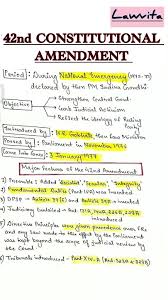 Lawvita
42nd CONSTITUTIONAL
AMENDMENT
Period: During National Emergency
declared by then PM Indira Gandhi
Objective
Strengthen Central Govt
Curb Judicial Activism
Reflect the ideology of
Introduced by: H.R. Gokhale, then Law Minister
Passed by: Parliament in November 1976
Came Into Force: 3 January 1977
Major Features of the 42nd Amendment
1) Preamble: Added 'Socialist', 'Secular', 'Integrity'
2) Fundamental Duties (Part IVA) was inserted
3) DPSP - Article 39(f) and 43A were inserted
4) Judiciary Curtailed -
5) Directive Principles were given precedence over FRs
and any law made to this effect by the Parliament
was kept beyond the scope of judicial review by
the Court
6) Tribunals Introduced - Part XIV A (Art 323A & 323B)